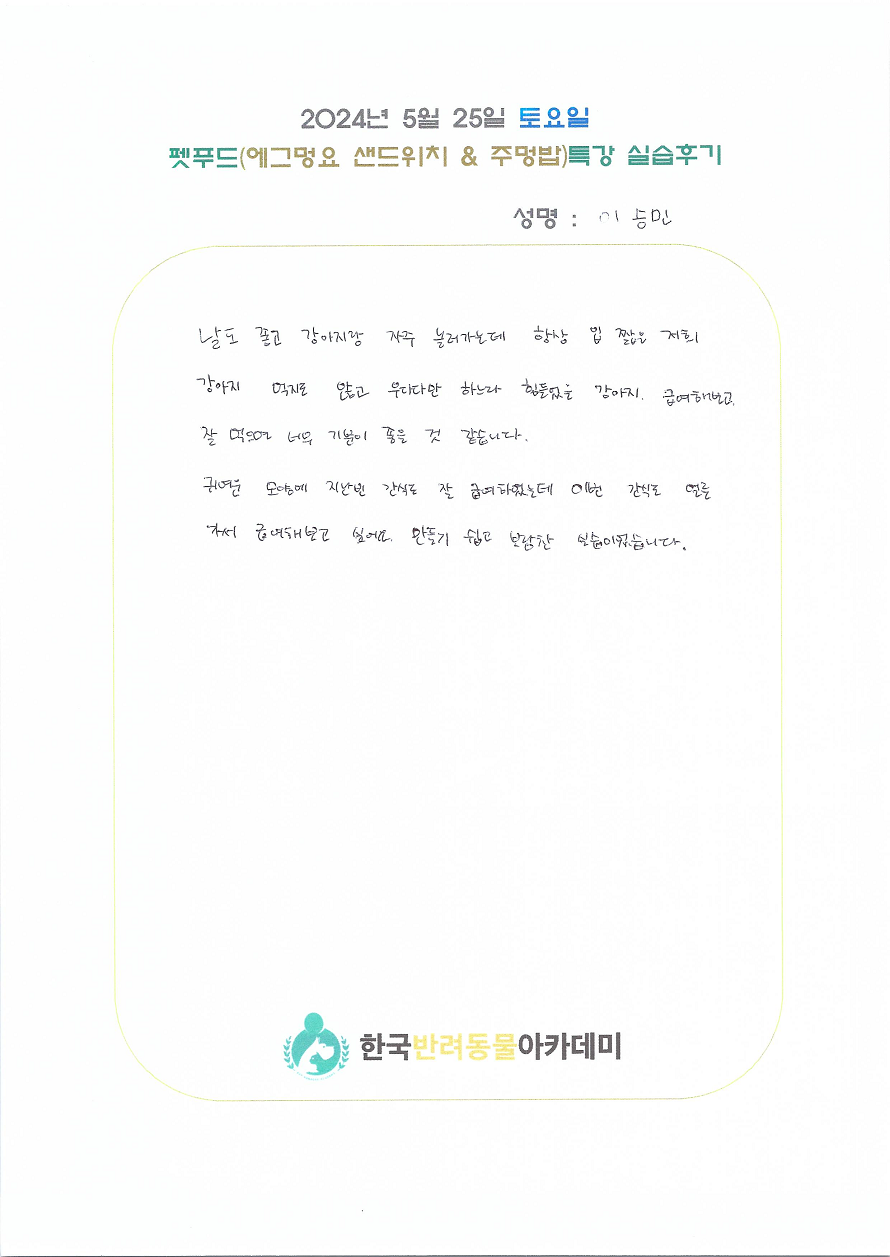 2024년 5월 25일 토요일
펫푸드(에그멍요 샌드위치 & 주멍밥)특강 실습후기
성명 : 이승민
날도 좋고 강아지랑 자주 놀러가는데 항상 입 짧은 저희
강아지 먹지도 않고 우다다만 하느라 힘들었을 강아지. 급여해보고,
잘 먹으면 너무 기분이 좋을 것 같습니다.
귀여운 모양에 지난번 간식도 잘 급여하였는데 이번 간식도 얼른
가서 급여해보고 싶어요. 만들기 쉽고 보람찬 실습이었습니다.
한국반려동물아카데미